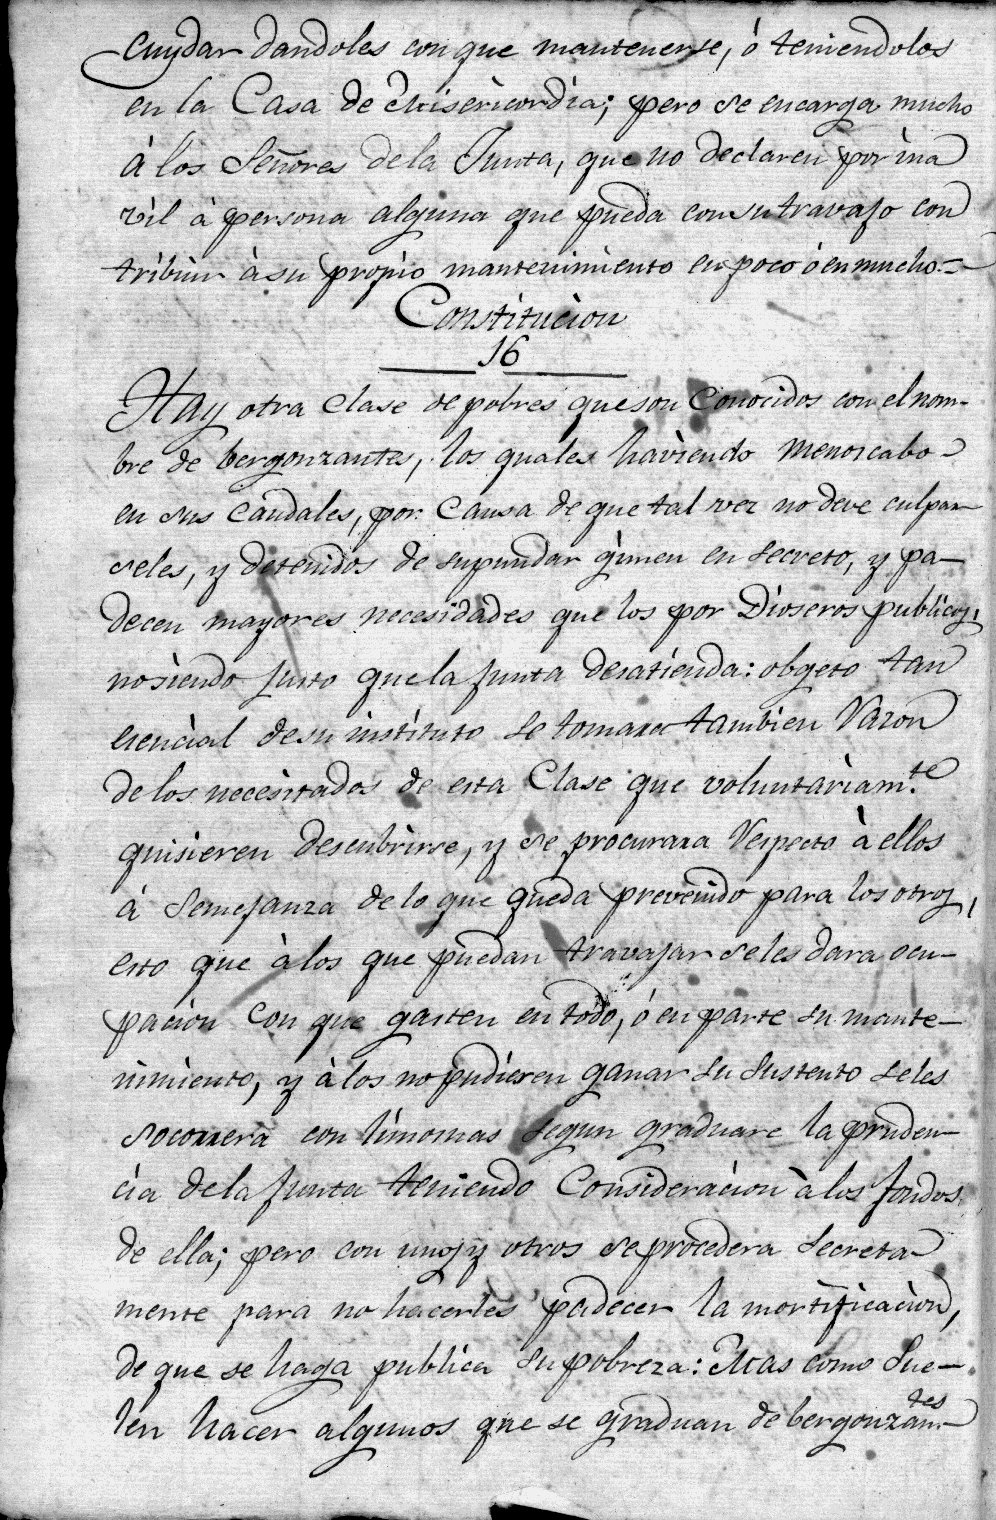 cuydar dandoles con que mantenerse, ó teniendolos
en la Casa de Misericordia; pero se encarga mucho
á los Señores dela Junta, que no declaren por ina
vil à persona alguna que pueda con su travajo con
tribuir à su propio mantenimiento en poco ó en mucho.=
Constitucion
16
Hay otra Clase de pobres que son Conocidos con el nom-
bre de bergonzantes, los quales haviendo menoscabo
en sus caudales, por Causa de que tal vez no deve culpar
seles, y detenidos de su pundar gimen en secreto, y pa-
decen mayores necesidades que los por Dioseros publicos,
no siendo justo que la junta desatienda: obgeto tan
esencial de su instituto se tomara tambien Razon
de los necesitados de esta Clase que voluntariam.te
quisieren descubrirse, y se procurara Respecto à ellos
à semejanza de lo que queda prevenido para los otros,
esto que à los que puedan travajar se les dara ocu-
pacion con que gasten en todo, ó en parte su mante-
nimiento, y à los no pudieren ganar su sustento se les
socorrerà con limornas segun graduare la pruden-
cia de la junta teniendo Consideracion à los fondos
de ella; pero con unos y otros se procedera secreta
mente para no hacerles padecer la mortificacion,
de que se haga publica su pobreza: Mas como sue-
len hacer algunos que se graduan de bergonzan.tes